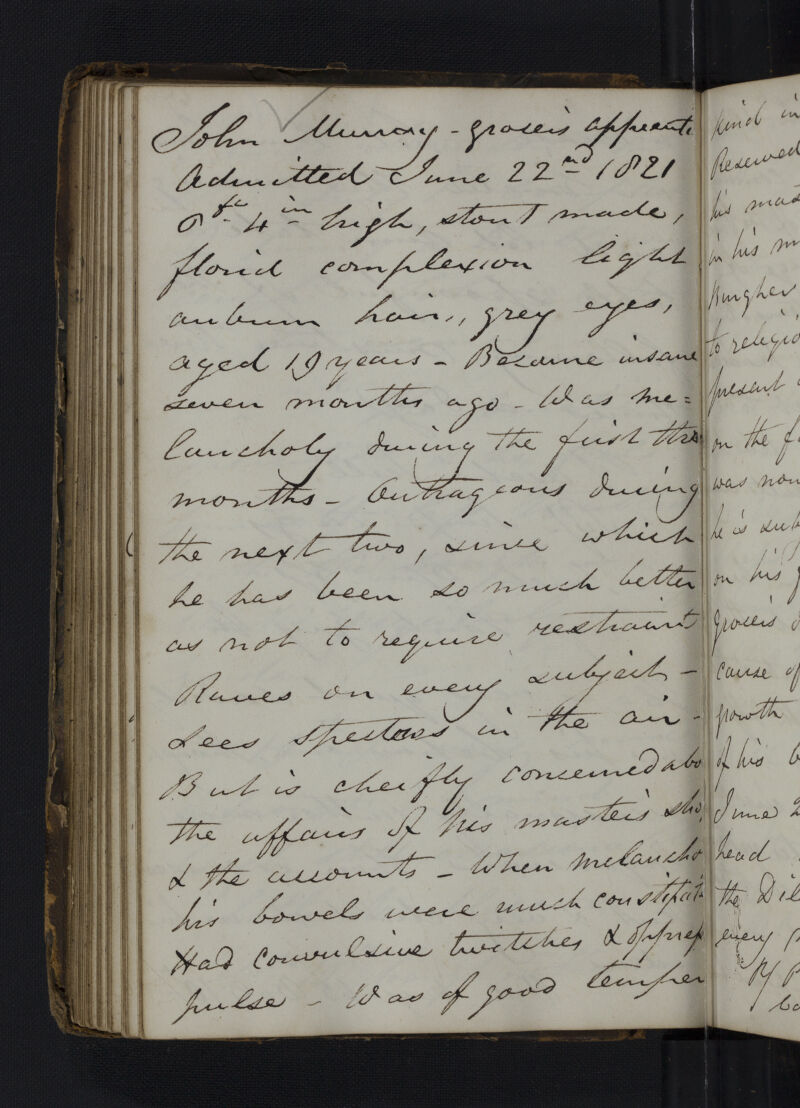 John Murray - grocers apprenti
Admitted June 22nd 1821
6ft 4in high, stout made,
florid complexion light
auburn hair, grey eyes,
aged 19 years - Became insane
seven months ago - Was me=
lancholy during the first thre
months - Outrageous during
the next two, since which
he has been so much better
as not to require restraint
Raves on every subject -
Sees specters in the air -
But is cheifly concerned abo
the affairs of his masters sho
& the accounts - When melancho
his bowels were much constipat
Had convulsive twitches & oppres
pulse - Was of good temper
kind in
Reserved
his mas
in his m
Burgher
to religio
present
on the f
was non
he is sub
on his
grocers
cause of
growth
of his b
June 2
head
the Dil
every p